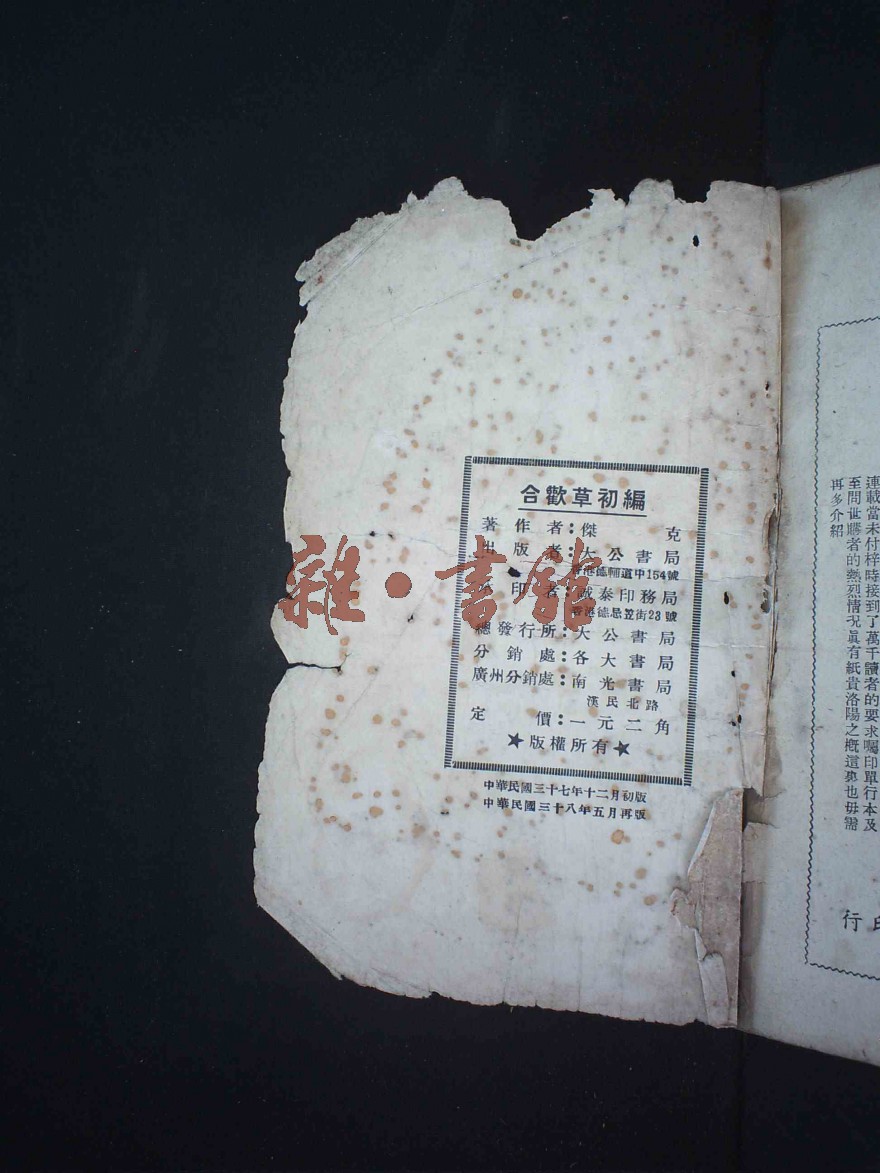 合歡草初編
著作者：傑克
出版者：大公書局
香港德輔道中154號
承印者：誠泰印務局
香港德忌笠街23號
總發行所：大公書局
分銷處：各大書局
廣州分銷處：南光書局
漢民北路
定價：一元二角
★版權所有★
中華民國三十七年十二月初版
中華民國三十八年五月再版
雜·書館
連載當未付梓時接到了萬千讀者的要求囑印單行本及
至問世購者的熱烈情況眞有紙貴洛陽之概這奧也毋需
再多介紹
行